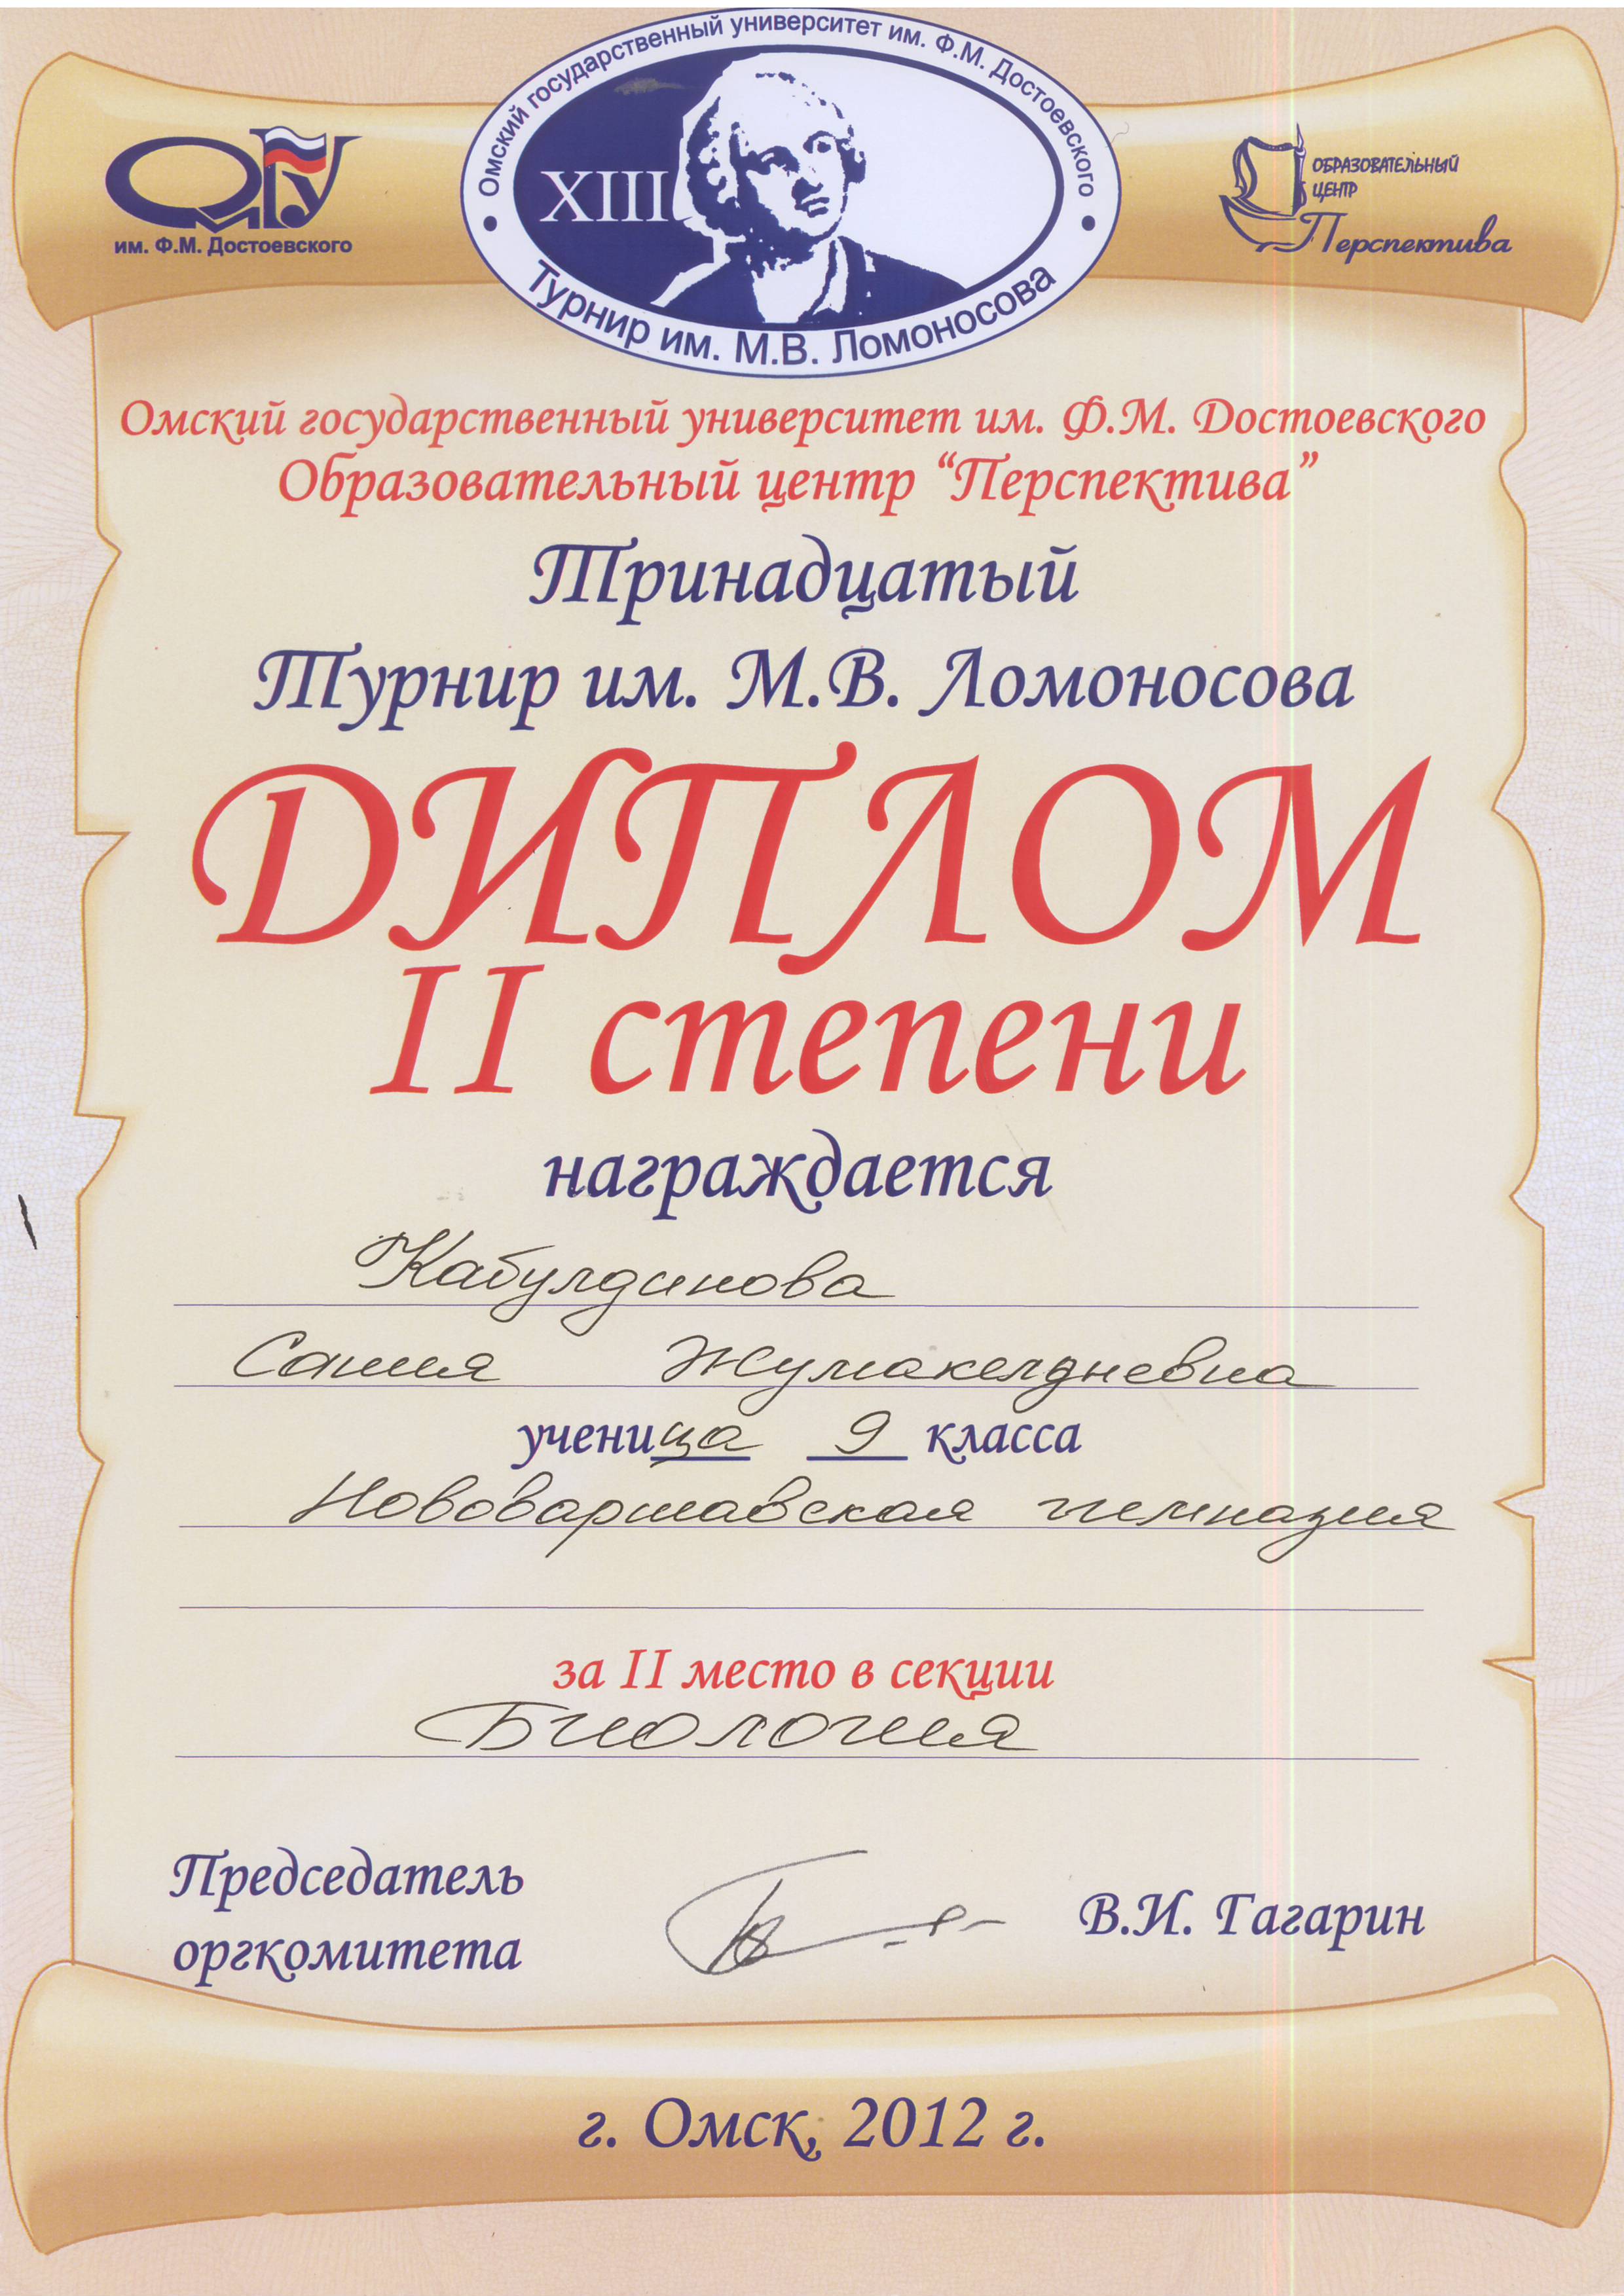 Омский государственный университет им. Ф.М. Достоевского
XIII
Турнир им. М.В. Ломоносова
ОмГУ
им. Ф.М. Достоевского
ОБРАЗОВАТЕЛЬНЫЙ
ЦЕНТР
Перспектива
Омский государственный университет им. Ф.М. Достоевского
Образовательный центр “Перспектива”
Тринадцатый
Турнир им. М.В. Ломоносова
ДИПЛОМ
II степени
награждается
Кабулдинова
Сания Жумакелдневна
ученица 9 класса
Нововаршавская гимназия
за II место в секции
Биология
Председатель
оргкомитета
В.И. Гагарин
г. Омск, 2012 г.